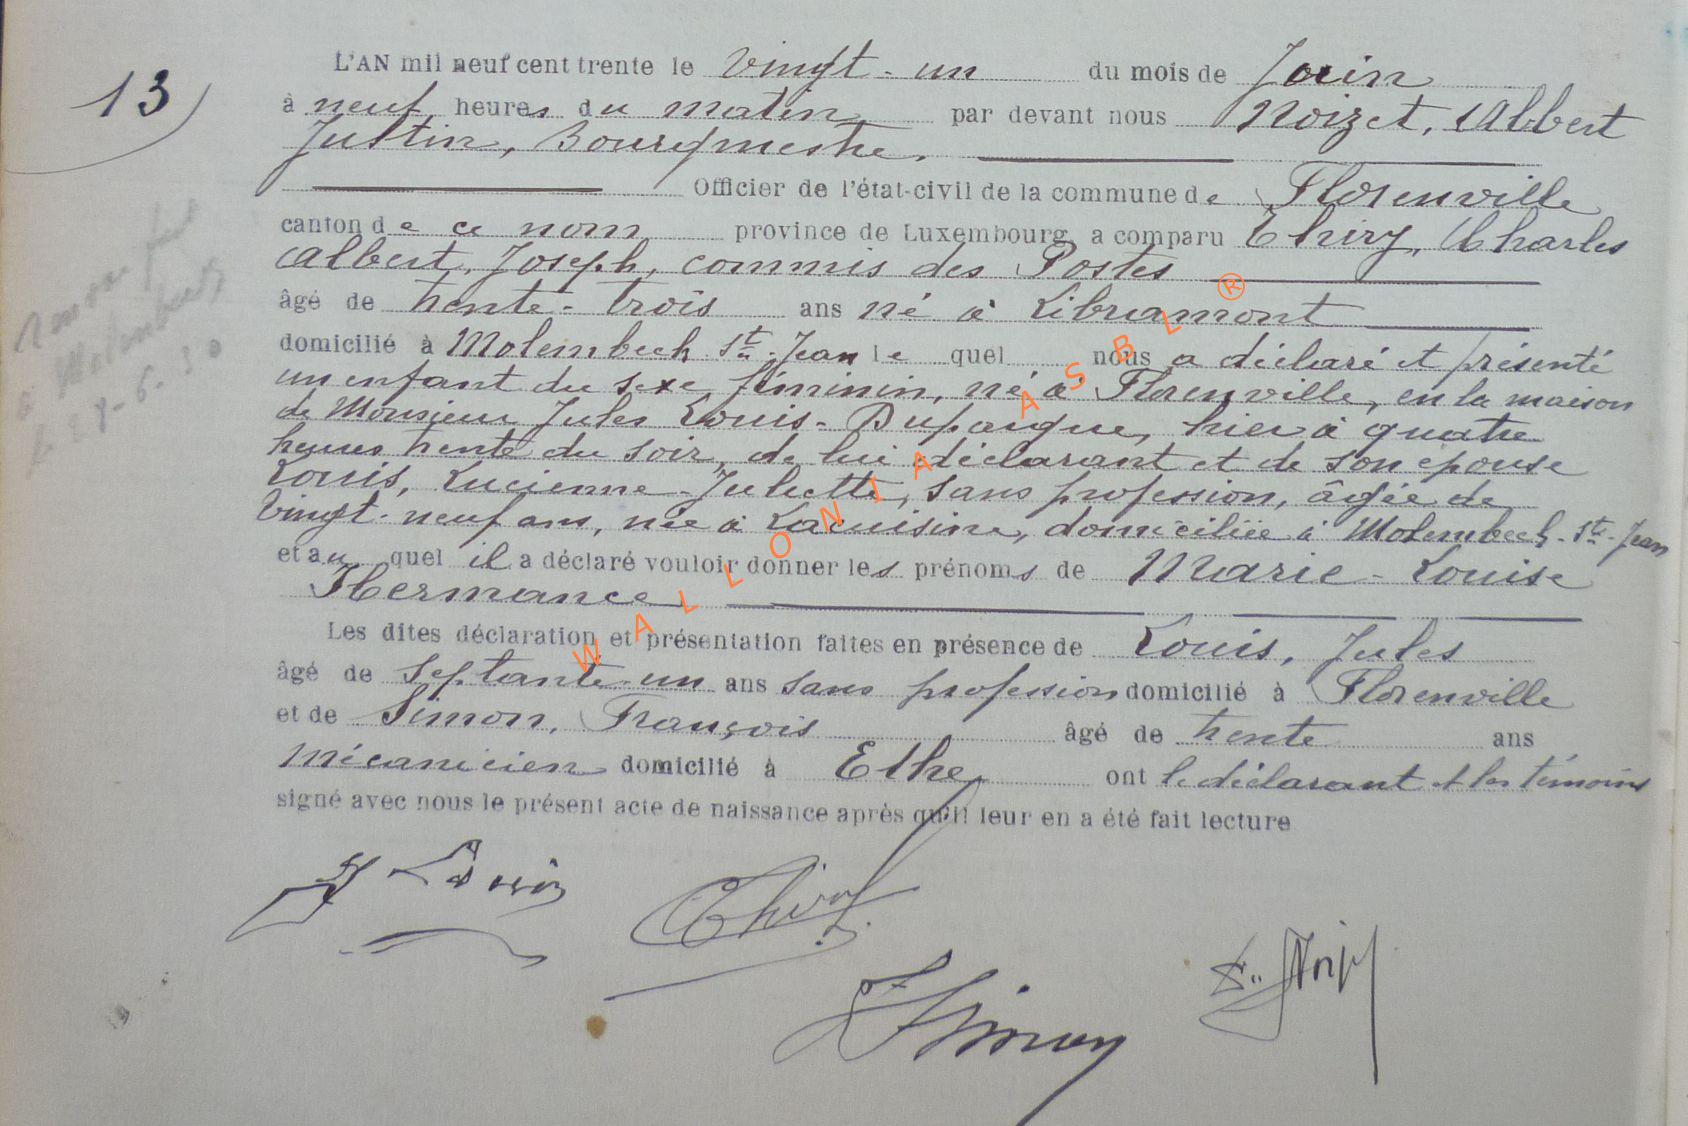 13
L'AN mil neuf cent trente le vingt-un du mois de Juin
à neuf heures du matin par devant nous Noizet, Albert
Justin, Bourgmestre,
Officier de l'état-civil de la commune de Florenville
canton de ce nom province de Luxembourg, a comparu Thiry, Charles
Albert, Joseph, commis des Postes
âgé de trente-trois ans né à Libramont
domicilié à Molembeek St Jean le quel nous a déclaré et présenté
un enfant du sexe féminin, né à Florenville, en la maison
de Monsieur Jules Louis-Dupaigne, hier à quatre
heures trente du soir, de lui déclarant et de son épouse
Louis, Lucienne-Juliette, sans profession, âgée de
vingt-neuf ans, née à Lacuisine, domiciliée à Molembeek-St-Jean
et au quel il a déclaré vouloir donner les prénoms de Marie-Louise
Hermance
Les dites déclaration et présentation faites en présence de Louis, Jules
âgé de septante-un ans sans profession domicilié à Florenville
et de Simon, François âgé de trente ans
mécanicien domicilié à Ethe, ont le déclarant et les témoins
signé avec nous le présent acte de naissance après qu'il leur en a été fait lecture
Thiry
Simon
Noizet
WALLONIA ASBL ®